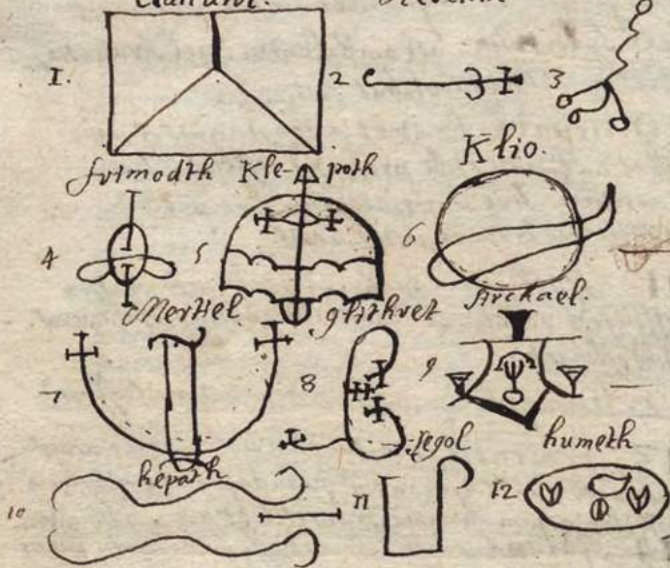 1. 2 3
frimodth Kle-poth Klio.
4 5 6
Mersiel glithret Sirchael.
7 8 9
hepath -segol humeth
10 11 12